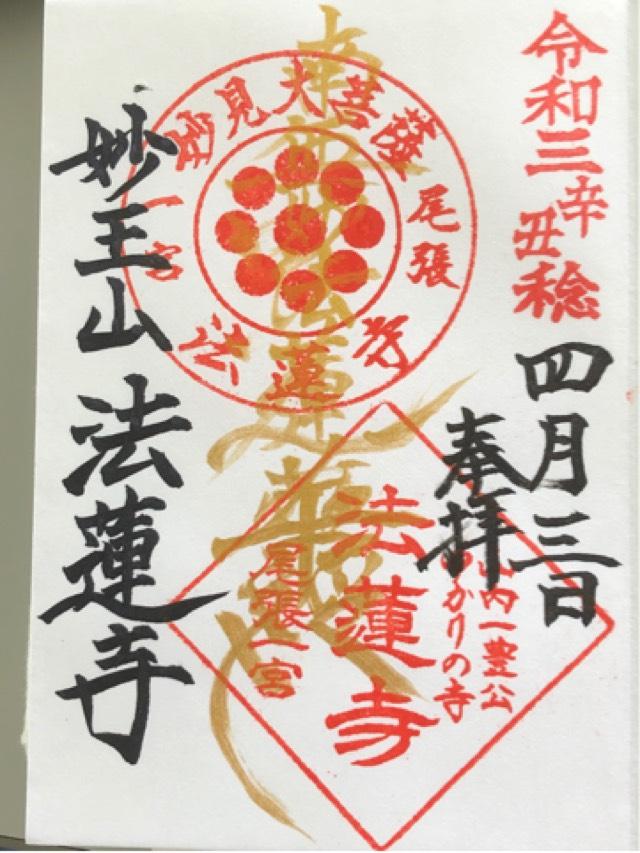 令和三辛丑稔
四月三日
奉拝
南無妙法蓮華経
見大菩薩
尾張
一宮
法蓮寺
山内一豊公
ゆかりの寺
法蓮寺
尾張一宮
妙王山 法蓮寺